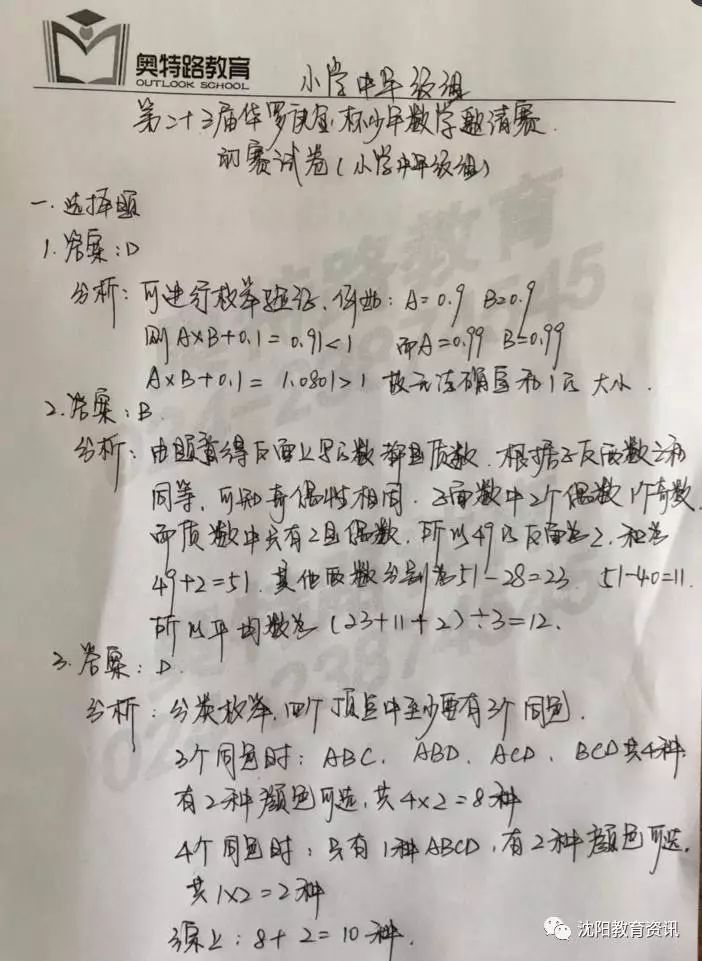 奥特路教育
OUTLOOK SCHOOL
小学中年级组
第二十三届华罗庚金杯少年数学邀请赛
初赛试卷(小学中年级组)
一.选择题
1.答案:D
分析:可进行枚举验证.例如:A=0.9 B=0.9
则A×B+0.1=0.91<1 而A=0.99 B=0.99
A×B+0.1=1.0801>1 故无法确定和1的大小.
2.答案:B.
分析:由题意得反面上写的数都是质数.根据正反两数之和
同等,可知奇偶性相同.正面数中2个偶数1个奇数.
而质数中只有2是偶数.所以49的反面是2.和为
49+2=51.其他两数分别为51-28=23. 51-40=11.
所以平均数为(23+11+2)÷3=12.
3.答案:D.
分析:分类枚举,四个顶点中至少要有3个同色.
3个同色时:ABC. ABD. ACD. BCD共4种.
有2种颜色可选,共4×2=8种
4个同色时:只有1种ABCD,有2种颜色可选.
共1×2=2种
综上:8+2=10种.
奥特路教育
024-23874545
024-23874545
沈阳教育资讯